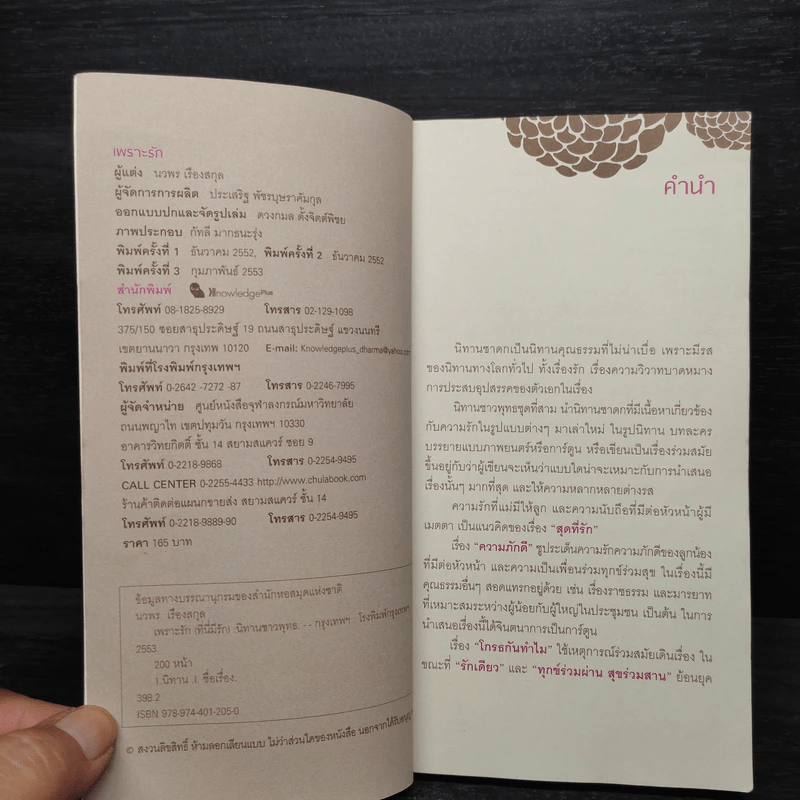 เพราะรัก
ผู้แต่ง นวพร เรืองสกุล
ผู้จัดการการผลิต ประเสริฐ พัชรบุษราคัมกุล
ออกแบบปกและจัดรูปเล่ม ดวงกมล ตั้งจิตต์พิชย
ภาพประกอบ กัทลี มากธนะรุ่ง
พิมพ์ครั้งที่ 1 ธันวาคม 2552, พิมพ์ครั้งที่ 2 ธันวาคม 2552
พิมพ์ครั้งที่ 3 กุมภาพันธ์ 2553
สำนักพิมพ์ KnowledgePlus
โทรศัพท์ 08-1825-8929 โทรสาร 02-129-1098
375/150 ซอยสาธุประดิษฐ์ 19 ถนนสาธุประดิษฐ์ แขวงนนทรี
เขตยานนาวา กรุงเทพ 10120 E-mail: Knowledgeplus_dharma@yahoo.com
พิมพ์ที่โรงพิมพ์กรุงเทพฯ
โทรศัพท์ 0-2642 -7272 -87 โทรสาร 0-2246-7995
ผู้จัดจำหน่าย ศูนย์หนังสือจุฬาลงกรณ์มหาวิทยาลัย
ถนนพญาไท เขตปทุมวัน กรุงเทพฯ 10330
อาคารวิทยกิตติ์ ชั้น 14 สยามสแควร์ ซอย 9
โทรศัพท์ 0-2218-9868 โทรสาร 0-2254-9495
CALL CENTER 0-2255-4433 http://www.chulabook.com
ร้านค้าติดต่อแผนกขายส่ง สยามสแควร์ ชั้น 14
โทรศัพท์ 0-2218-9889-90 โทรสาร 0-2254-9495
ราคา 165 บาท
ข้อมูลทางบรรณานุกรมของสำนักหอสมุดแห่งชาติ
นวพร เรืองสกุล
เพราะรัก (ที่นี่มีรัก) :นิทานชาวพุทธ. -- กรุงเทพฯ : โรงพิมพ์กรุงเทพฯ
2553
200 หน้า
1.นิทาน .I. ชื่อเรื่อง.
398.2
ISBN 978-974-401-205-0
© สงวนลิขสิทธิ์ ห้ามลอกเลียนแบบ ไม่ว่าส่วนใดของหนังสือ นอกจากได้รับอนุญ
คำนำ
นิทานชาดกเป็นนิทานคุณธรรมที่ไม่น่าเบื่อ เพราะมีรส
ของนิทานทางโลกทั่วไป ทั้งเรื่องรัก เรื่องความวิวาทบาดหมาง
การประสบอุปสรรคของตัวเอกในเรื่อง
นิทานชาวพุทธชุดที่สาม นำนิทานชาดกที่มีเนื้อหาเกี่ยวข้อง
กับความรักในรูปแบบต่างๆ มาเล่าใหม่ ในรูปนิทาน บทละคร
บรรยายแบบภาพยนตร์หรือการ์ตูน หรือเขียนเป็นเรื่องร่วมสมัย
ขึ้นอยู่กับว่าผู้เขียนจะเห็นว่าแบบใดน่าจะเหมาะกับการนำเสนอ
เรื่องนั้นๆ มากที่สุด และให้ความหลากหลายต่างรส
ความรักที่แม่มีให้ลูก และความนับถือที่มีต่อหัวหน้าผู้มี
เมตตา เป็นแนวคิดของเรื่อง “สุดที่รัก”
เรื่อง “ความภักดี” ชูประเด็นความรักความภักดีของลูกน้อง
ที่มีต่อหัวหน้า และความเป็นเพื่อนร่วมทุกข์ร่วมสุข ในเรื่องนี้มี
คุณธรรมอื่นๆ สอดแทรกอยู่ด้วย เช่น เรื่องราชธรรม และมารยาท
ที่เหมาะสมระหว่างผู้น้อยกับผู้ใหญ่ในประชุมชน เป็นต้น ในการ
นำเสนอเรื่องนี้ได้จินตนาการเป็นการ์ตูน
เรื่อง “โกรธกันทำไม” ใช้เหตุการณ์ร่วมสมัยเดินเรื่อง ใน
ขณะที่ “รักเดียว” และ “ทุกข์ร่วมผ่าน สุขร่วมสาน” ย้อนยุค